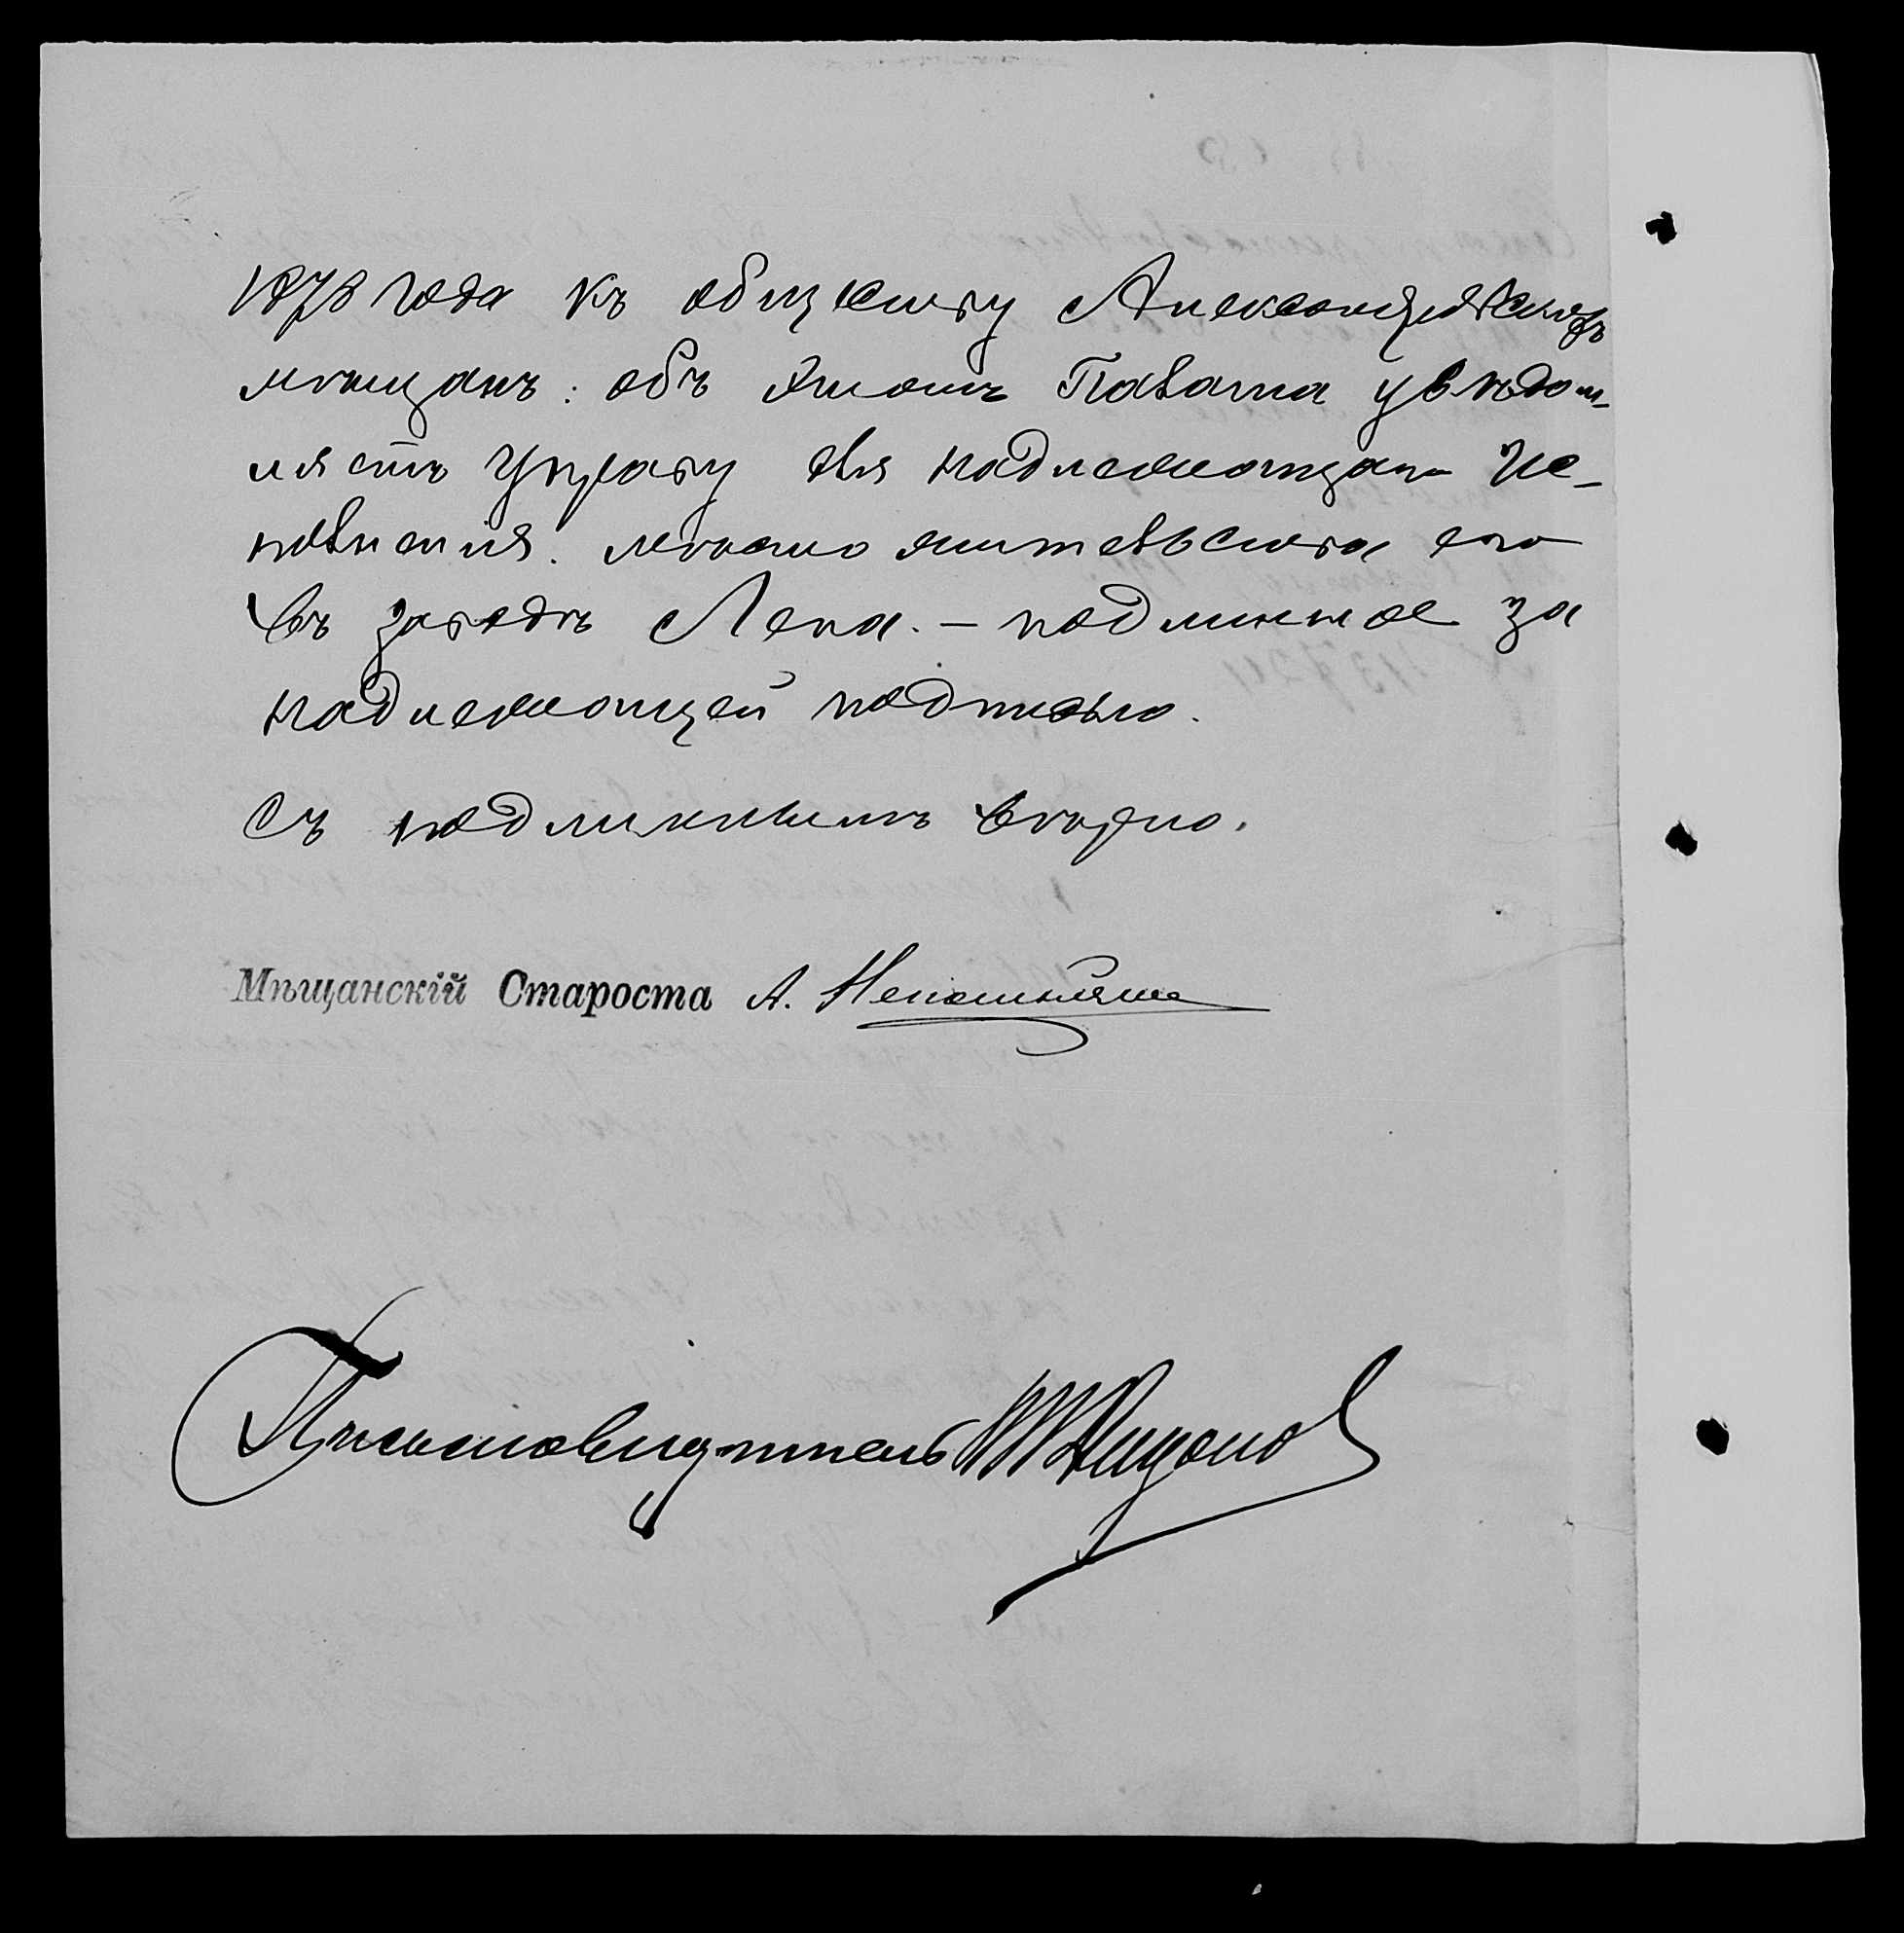 1878 года къ обществу Александрійскихъ
мѣщанъ: объ этомъ Палата увѣдом-
ляетъ Управу для надлежащаго Ис-
полненія. мѣсто жительства его
въ заводѣ Лена. – подлинное за
надлежащей подписью.
Съ подлиннымъ вѣрно.
Мѣщанскій Староста А.
Письмоводитель